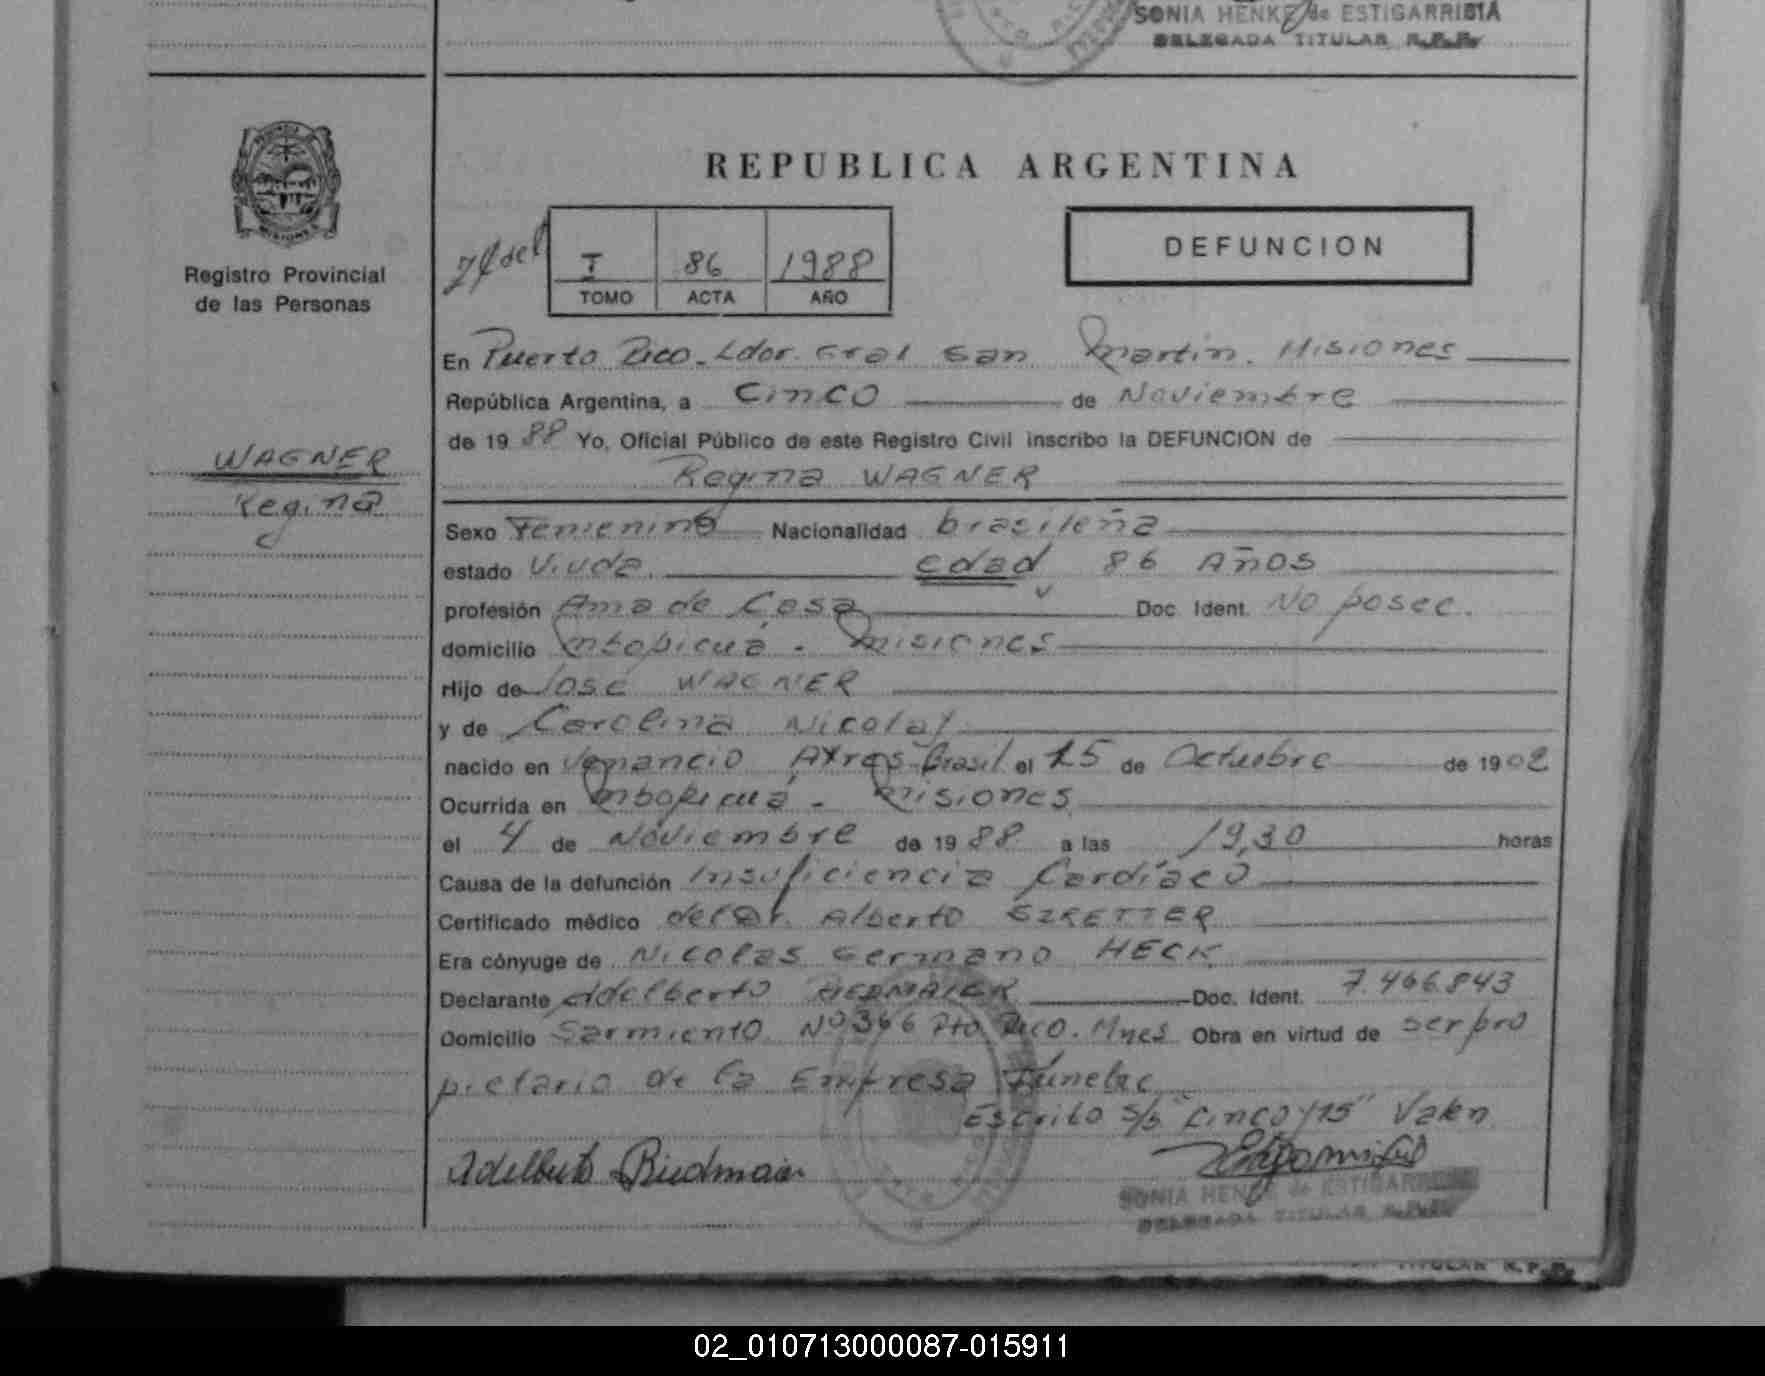 SONIA HENKE de ESTIGARRIBIA
DELEGADA TITULAR R.P.P.
REPUBLICA ARGENTINA
Registro Provincial
de las Personas
I 86 1988
TOMO ACTA AÑO
DEFUNCION
En Puerto Rico - Ldor. Gral San Martin. Misiones
República Argentina, a Cinco de Noviembre
de 1988 Yo, Oficial Público de este Registro Civil inscribo la DEFUNCION de
WAGNER
Regina
Regina WAGNER
Sexo Femenino Nacionalidad brasileña
estado Viuda. edad 86 Años
profesión Ama de Casa Doc. Ident. No posee.
domicilio Mbopicuá - Misiones
Hijo de José WAGNER
y de Carolina Nicolay
nacido en Venancio Ayres-Brasil el 15 de Octubre de 1902
Ocurrida en Mbopicuá - Misiones
el 4 de Noviembre de 1988 a las 19,30 horas
Causa de la defunción Insuficiencia Cardíaco
Certificado médico del Dr. Alberto EZRETTER
Era cónyuge de Nicolas Germano HECK
Declarante Adelberto BIEDMAIER Doc. Ident. 7.466.843
Domicilio Sarmiento Nº 366 Pto. Rico. Mnes Obra en virtud de ser pro
pietario de la Empresa Funebre
Escrito s/b "Cinco y 15" Valen
Adelberto Biedmaier
SONIA HENKE de ESTIGARRIBIA
DELEGADA TITULAR R.P.P.
TITULAR R.P.P.
02_010713000087-015911